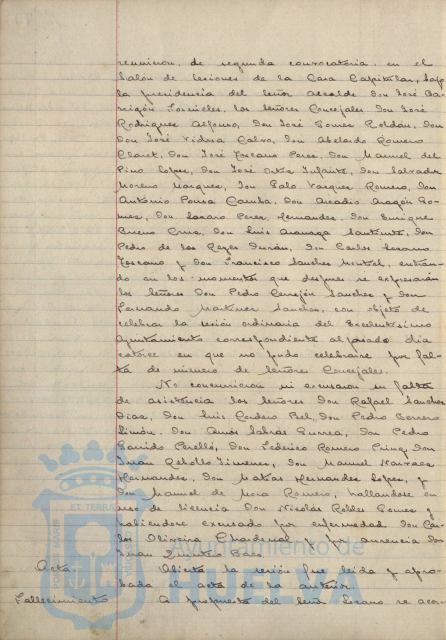 reunion, de segunda convocatoria, en el
Salón de Sesiones de la Casa Capitular, bajo
la presidencia del Señor Alcalde Don José Ba-
rrigón Fornieles, los Señores Concejales Don José
Rodriguez Alfonso, Don José Gomez Roldán, Don
Don José Vidosa Calvo, Don Abelardo Romero
Claret, Don José Toscano Perez, Don Manuel del
Pino Lopez, Don José Ortiz Infante, Don Salvador
Moreno Marquez, Don Galo Vazquez Romero, Don
Antonio Pousa Camba, Don Arcadio Aragón Go-
mez, Don Lazaro Perez Hernandez, Don Enrique
Bueno Cruz, Don Luis Santamaria, Don
Pedro de los Reyes Durán, Don Carlos Lozano
Toscano y Don Francisco Sanchez, entran-
do en los momentos que despues se expresarán
los Señores Don Pedro Cerrejón Sanchez y Don
Fernando Martinez Sanchez, con objeto de
celebrar la sesión ordinaria del Excelentísimo
Ayuntamiento correspondiente al pasado dia
catorce en que no pudo celebrarse por fal-
ta de número de Señores Concejales.
No concurrieron ni excusaron su falta
de asistencia los Señores Don Rafael Sanchez
Diaz, Don Luis Cordero Bel, Don Pedro Borrero
Limón, Don Amós Sabrás Gurrea, Don Pedro
Garrido Perelló, Don Federico Romero, Don
Juan Rebollo Jimenez, Don Manuel Narvaez
Hernandez, Don Matías Hernandez Lopez, y
Don Manuel de Mora Romero, hallandose en
uso de licencia Don Nicolás Robles Gomez y
habiendose excusado por enfermedad Don Car-
los Oliveira Chardenal y por ausencia Don
Juan Quintero Baez
Acta.
Abierta la sesión fue leida y apro-
bada el acta de la anterior.
Fallecimiento
A propuesta del Señor Lozano se acor-
Ayuntamiento de
HUELVA